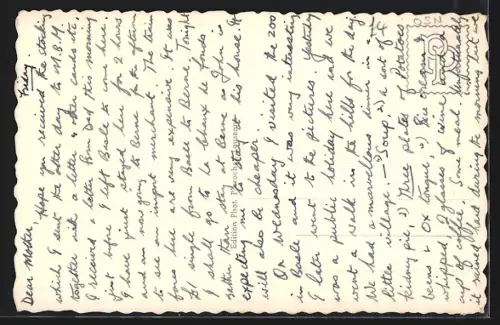 Friday
Dear Mother,
Hope you received the clothing
which I sent the other day to M.B.M.
together with a letter & other cards etc.
I received a letter from Dad, this morning
just before I left Basle to come here.
I have just stayed here for 2 hours
and am now going to Berne for the afternoon
to see an import merchant. The train
fares here are very expensive. It was
£1 single from Basle to Berne. Tonight
I shall go to La Chaux de Fonds
rather than stay at Berne as John is
expecting me to stay at his house. It
will also be cheaper.
On Wednesday I visited the zoo
in Basle and it was very interesting
& later went to the pictures. Yesterday
was a public holiday here and we
went a walk in the hills for the day.
We had a marvellous dinner in a
little village. 1) Soup, 2) a sort of
pie, 3) Three plates of Potatoes
beans & Ox tongue, 4)
whipped, 2 glasses of wine &
cup of coffee. Some meal.
it rained during the morning but we
Edition Phot. Perrochet, Lausanne
OSN